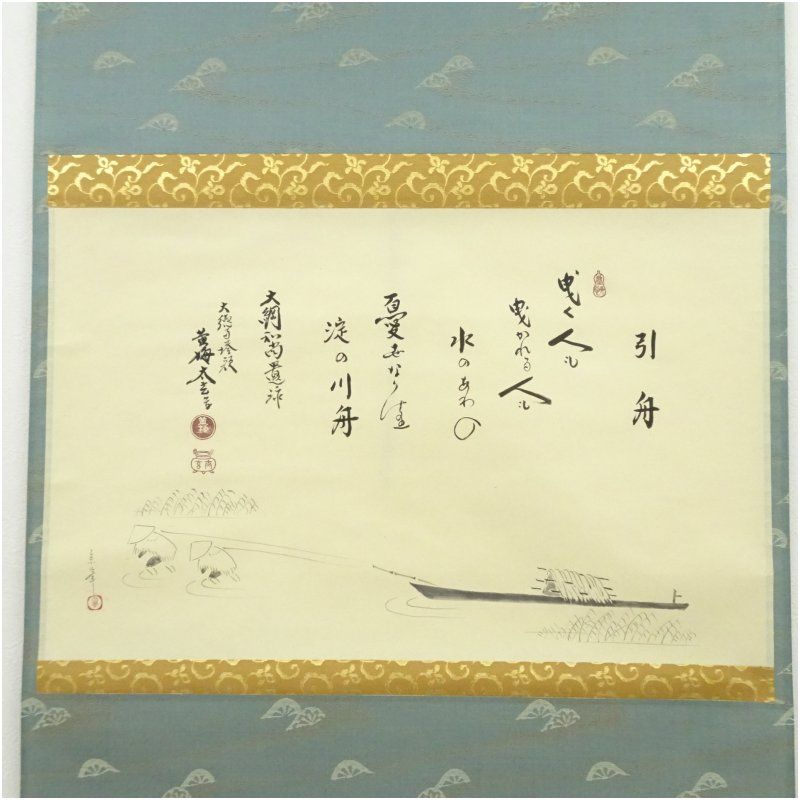 引舟
曳く人も
曳かれる人も
水のあわの
憂世なりけり
淀の川舟
大綱和尚遺詠
大徳寺塔頭
黄梅太玄書
黄梅